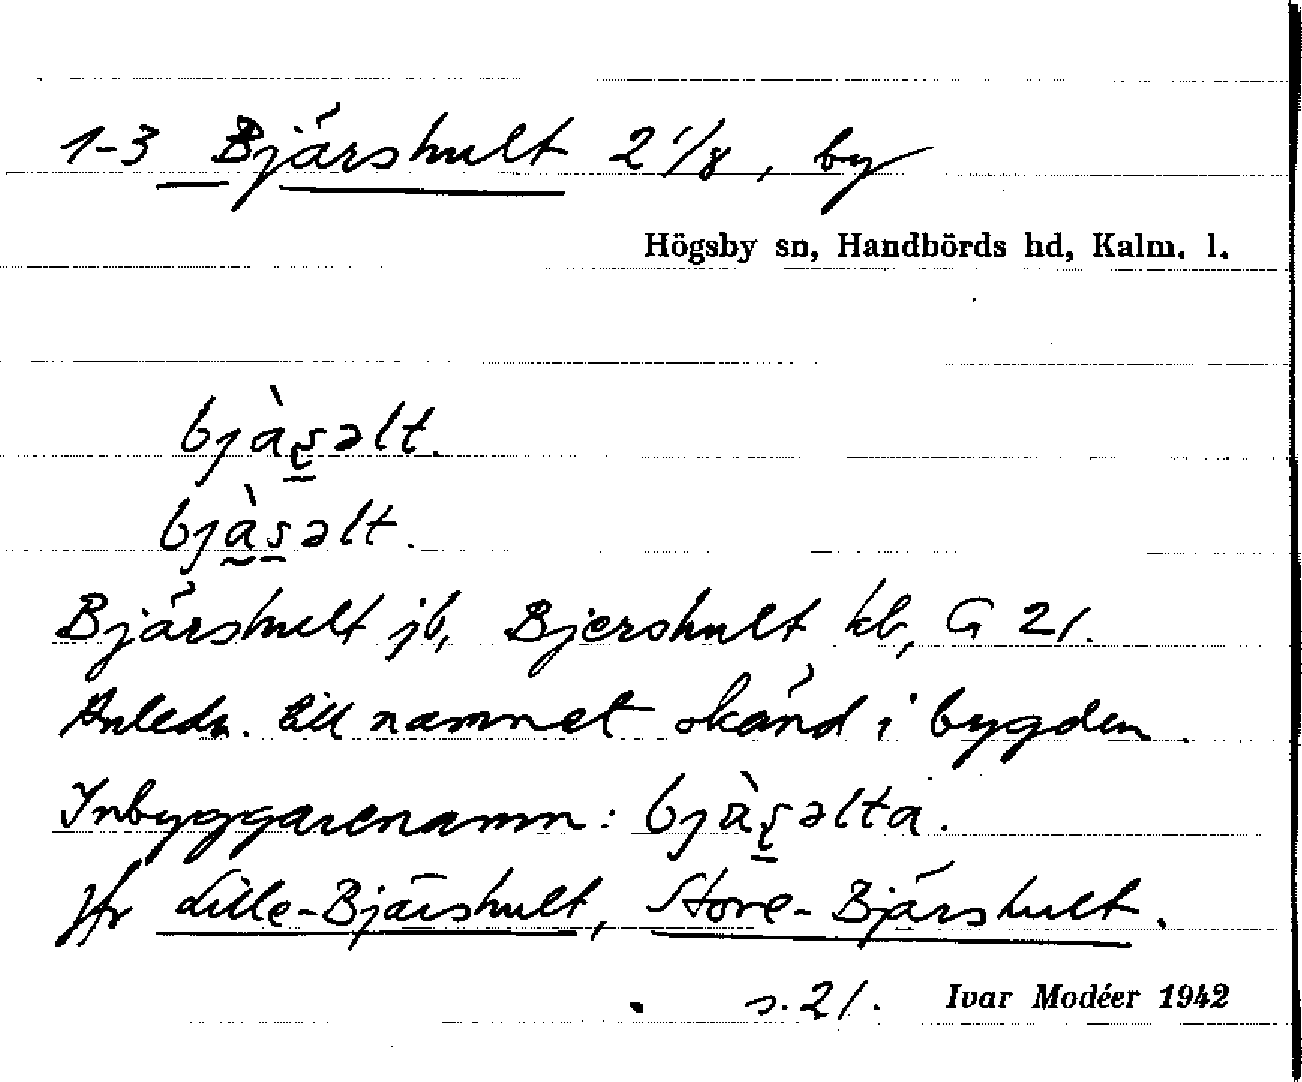 1-3 Bjärshult 2 1/8, by
Högsby sn, Handbörds hd, Kalm. l.
bjàs̱əlt.
bjàs̱əlt.
Bjärshult jb, Bjershult kb, G 21.
Anledn. till namnet okänd i bygden.
Inbyggarenamn: bjàs̱əlta.
Jfr Lille-Bjärshult, Store-Bjärshult.
s. 21. Ivar Modéer 1942